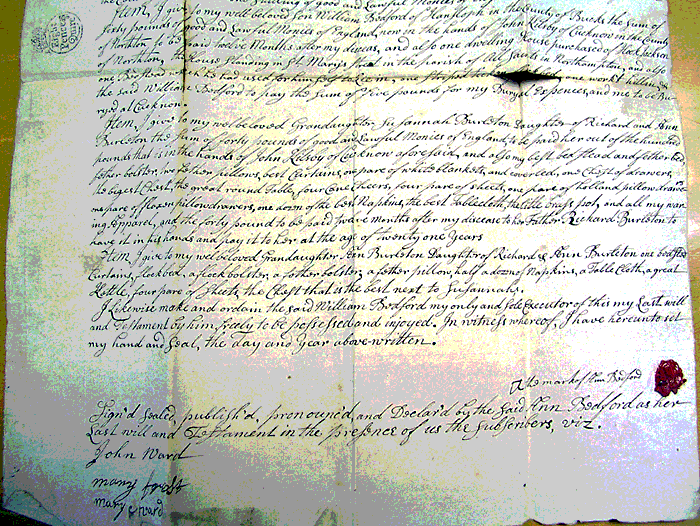 Item, I give to my well beloved son William Bedford of Hanslop in the County of Bucks the Sum of
forty pounds of good and Lawful Monies of England, now in the hands of John Kilsby of Cucknow in the County
of Northton to be paid twelve Months after my deceas, and also one dwelling House purchased of
of Northton, the House standing in St. Mary's street in the parish of All Saints in Northampton, and also
one Bedstead
the said William Bedford to pay the Sum of Five pounds for my Buryal Expences, and me to be Bu-
ryed at Cucknow.
Item, I give to my well beloved Grandaughter Susannah Burleton Daughter of Richard and Ann
Burleton the Sum of forty pounds of good and Lawful Monies of England, to be paid her out of the hundred
pounds that is in the hands of John Kilsby of Cucknow aforesaid, and also my best bed stead and fether bed
fether bolster, two fether pillows, best Curtains, one pare of white blankets, and coverled, one Chest of drawers,
the bigest Chest, the great round Table, four Cane Cheers, four pare of sheets, one pare of holland pillowdrawrs
one pare of flaxen pillowdrawers, one dozen of the best Napkins, the best Tablecloth, the little brass pot, and all my war-
ing Apparel, and the forty pound to be paid twelve Months after my disease to her Father Richard Burleton to
have it in his hands and pay it to her at the age of twenty one Years
Item, I give to my well beloved Grandaughter Ann Burleton Daughter of Richard & Ann Burleton one bedsted
Curtains, flockbed, a flock bolster, a fether bolster, a fether pillow, half a dozen of Napkins, a Table Cloth, a great
Kettle, four pare of sheets, the Chest that is the best next to Susannahs.
I Likewise make and ordain the said William Bedford my only and sole Executor of this my Last will
and Testament by him, freely to be possessed and injoyed. In witness whereof, I have hereunto set
my hand and seal, the day and Year above written.
the mark of Ann Bedford
Sign'd sealed, publish'd, pronounc'd, and Declar'd by the said Ann Bedford as her
Last will and Testament in the presence of us the subscribers, viz.
John Ward
mary
mary Ward